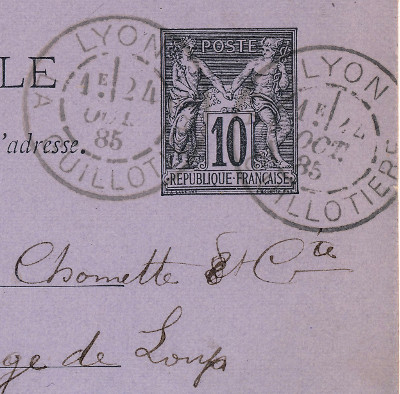 LYON
LA GUILLOTIERE
1E 24
OCT.
85
POSTE
10
REPUBLIQUE FRANÇAISE
LYON
GUILLOTIERE
1E 24
OCT.
85
LE
'adresse.
Chomette & Cte
ge de Loup